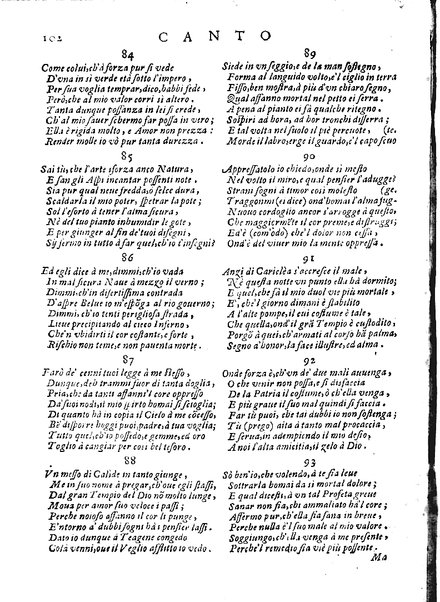 102 CANTO
84
Come colui, ch'à forza pur si vede
D'vna in sì verde età sotto l'impero,
Per sua voglia temprar, dico, babbi fede,
Però, che al mio valor corri sì altero.
Tanta dunque possanza in lei si crede,
Ch'al mio sauer schermo far possa in vero;
Ella è rigida molto, e Amor non prezza:
Render molle io vò pur tanta durezza.
85
Sai tù, che l'arte sforza anco Natura,
E sà gli Aspi incantar possenti note.
Sia pur qual neue fredda, ò selce dura,
Scaldarla il mio poter, spetrar la pote;
Sol l'esorto à tener l'alma sicura,
Nè del tuo pianto inhumidir le gote,
E per giunger al fin de' tuoi disegni,
Sij fermo in tutto à far quel, ch'io t'insegni?
86
Ed egli dice à me, dimmi, ch'io vada
In mal sicura Naue à mezzo il verno;
Dimmi, ch'in disertissima contrada
D'aspre Belue non espõga al rio gouerno;
Dimmi, ch'io tenti perigliosa strada,
Lieue precipitando al cieco Inferno,
Che'n vbidirti il cor costante, e forte,
Rischio non teme, e non pauenta morte.
87
Farò de' cenni tuoi legge à me stesso,
Dunque, deb trammi fuor di tanta doglia,
Pria, che da tanti affanni'l core oppresso
Dà suoi nodi, il mio spirto homai si scioglia;
Di quanto hà in copia il Cielo à me cõcesso,
Be' disporre boggi puoi, padre, à tua voglia;
Tutto quel, ch'io possedo, e gemme, ed oro
Toglio à cangiar per così bel tesoro.
88
Vn messo di Calide in tanto giunge,
Me in suo nome à pregar, ch'oue egli stassi
Dal gran Tempio del Dio nõ molto lunge,
Moua per amor suo veloce i passi;
Perche noioso affanno il cor li punge,
E'ntorno a' dubbi sogni hà i pensier lassi.
Dato io dunque à Teagene congedo
Colà venni, oue il Veglio afflitto io vedo.
89
Siede in vn seggio, e de la man sostegno,
Forma al languido volto, e'l ciglio in terra
Fisso, ben mostra, à più d'vn chiaro segno,
Qual affanno mortal nel petto ei serra.
A pena al pianto ei fà qualche ritegno.
Sospiri ad bora, ad bor tronchi disserra,
E tal volta nel suolo il piè percuote, (te.
Morde il labro, erge il guardo, e'l capo scuo
90
Appressatolo io chiedo, onde sì mesto
Ne' gli miri, e qual pensier l'adugge?
Strani sogni à timor così molesto (ge,
Traggonmi (ei dice) ond'homai l'alma fug-
Nuouo cordoglio ancor s'arroge à questo,
Che maggiormẽte il cor preme, e distrugge;
Ed è (com'odo) che'l dolor non cessa,
Ond'è del viuer mio la mente oppressa.
91
Anzi di Cariclèa s'accresce il male,
Nè questa notte vn punto ella hà dormito,
E quel, che fà il mio duol vie più mortale,
E', che'l giorno dimani è stabilito
A l'alte pompe, il cui costume è tale,
Che quella, ond'il grã Tempio è custodito,
Porga à quei, ch'armati al corso stanno,
Segno d'honor, la face illustre, ed alma.
92
Onde forza è, ch'vn de' due mali auuenga,
O che venir non possa, e si disfaccia
De la Patria il costume, ò ch'ella venga,
E più graue il suo mal quindi si faccia.
Par tuoi, che tai dubbi io non sostenga;
Tù (prego) aita à tanto mal procaccia,
E serua, in adempiendo il mio desio,
Anco l'alta amicitia, il zelo di Dio.
93
Sò ben'io, che volendo, à te fia leue
Sottrarla homai da sì mortal dolore;
E qual dicesti, à vn tal Profeta greue
Sanar non fia, chi ammaliato hà'l core;
Affermo pur, ch'ella fia sana in breue,
Perche nulla è'l suo male al mio valore.
Soggiungo, ch'ella venga à me presente,
Perche'l remedio fia viè più possente.
Ma